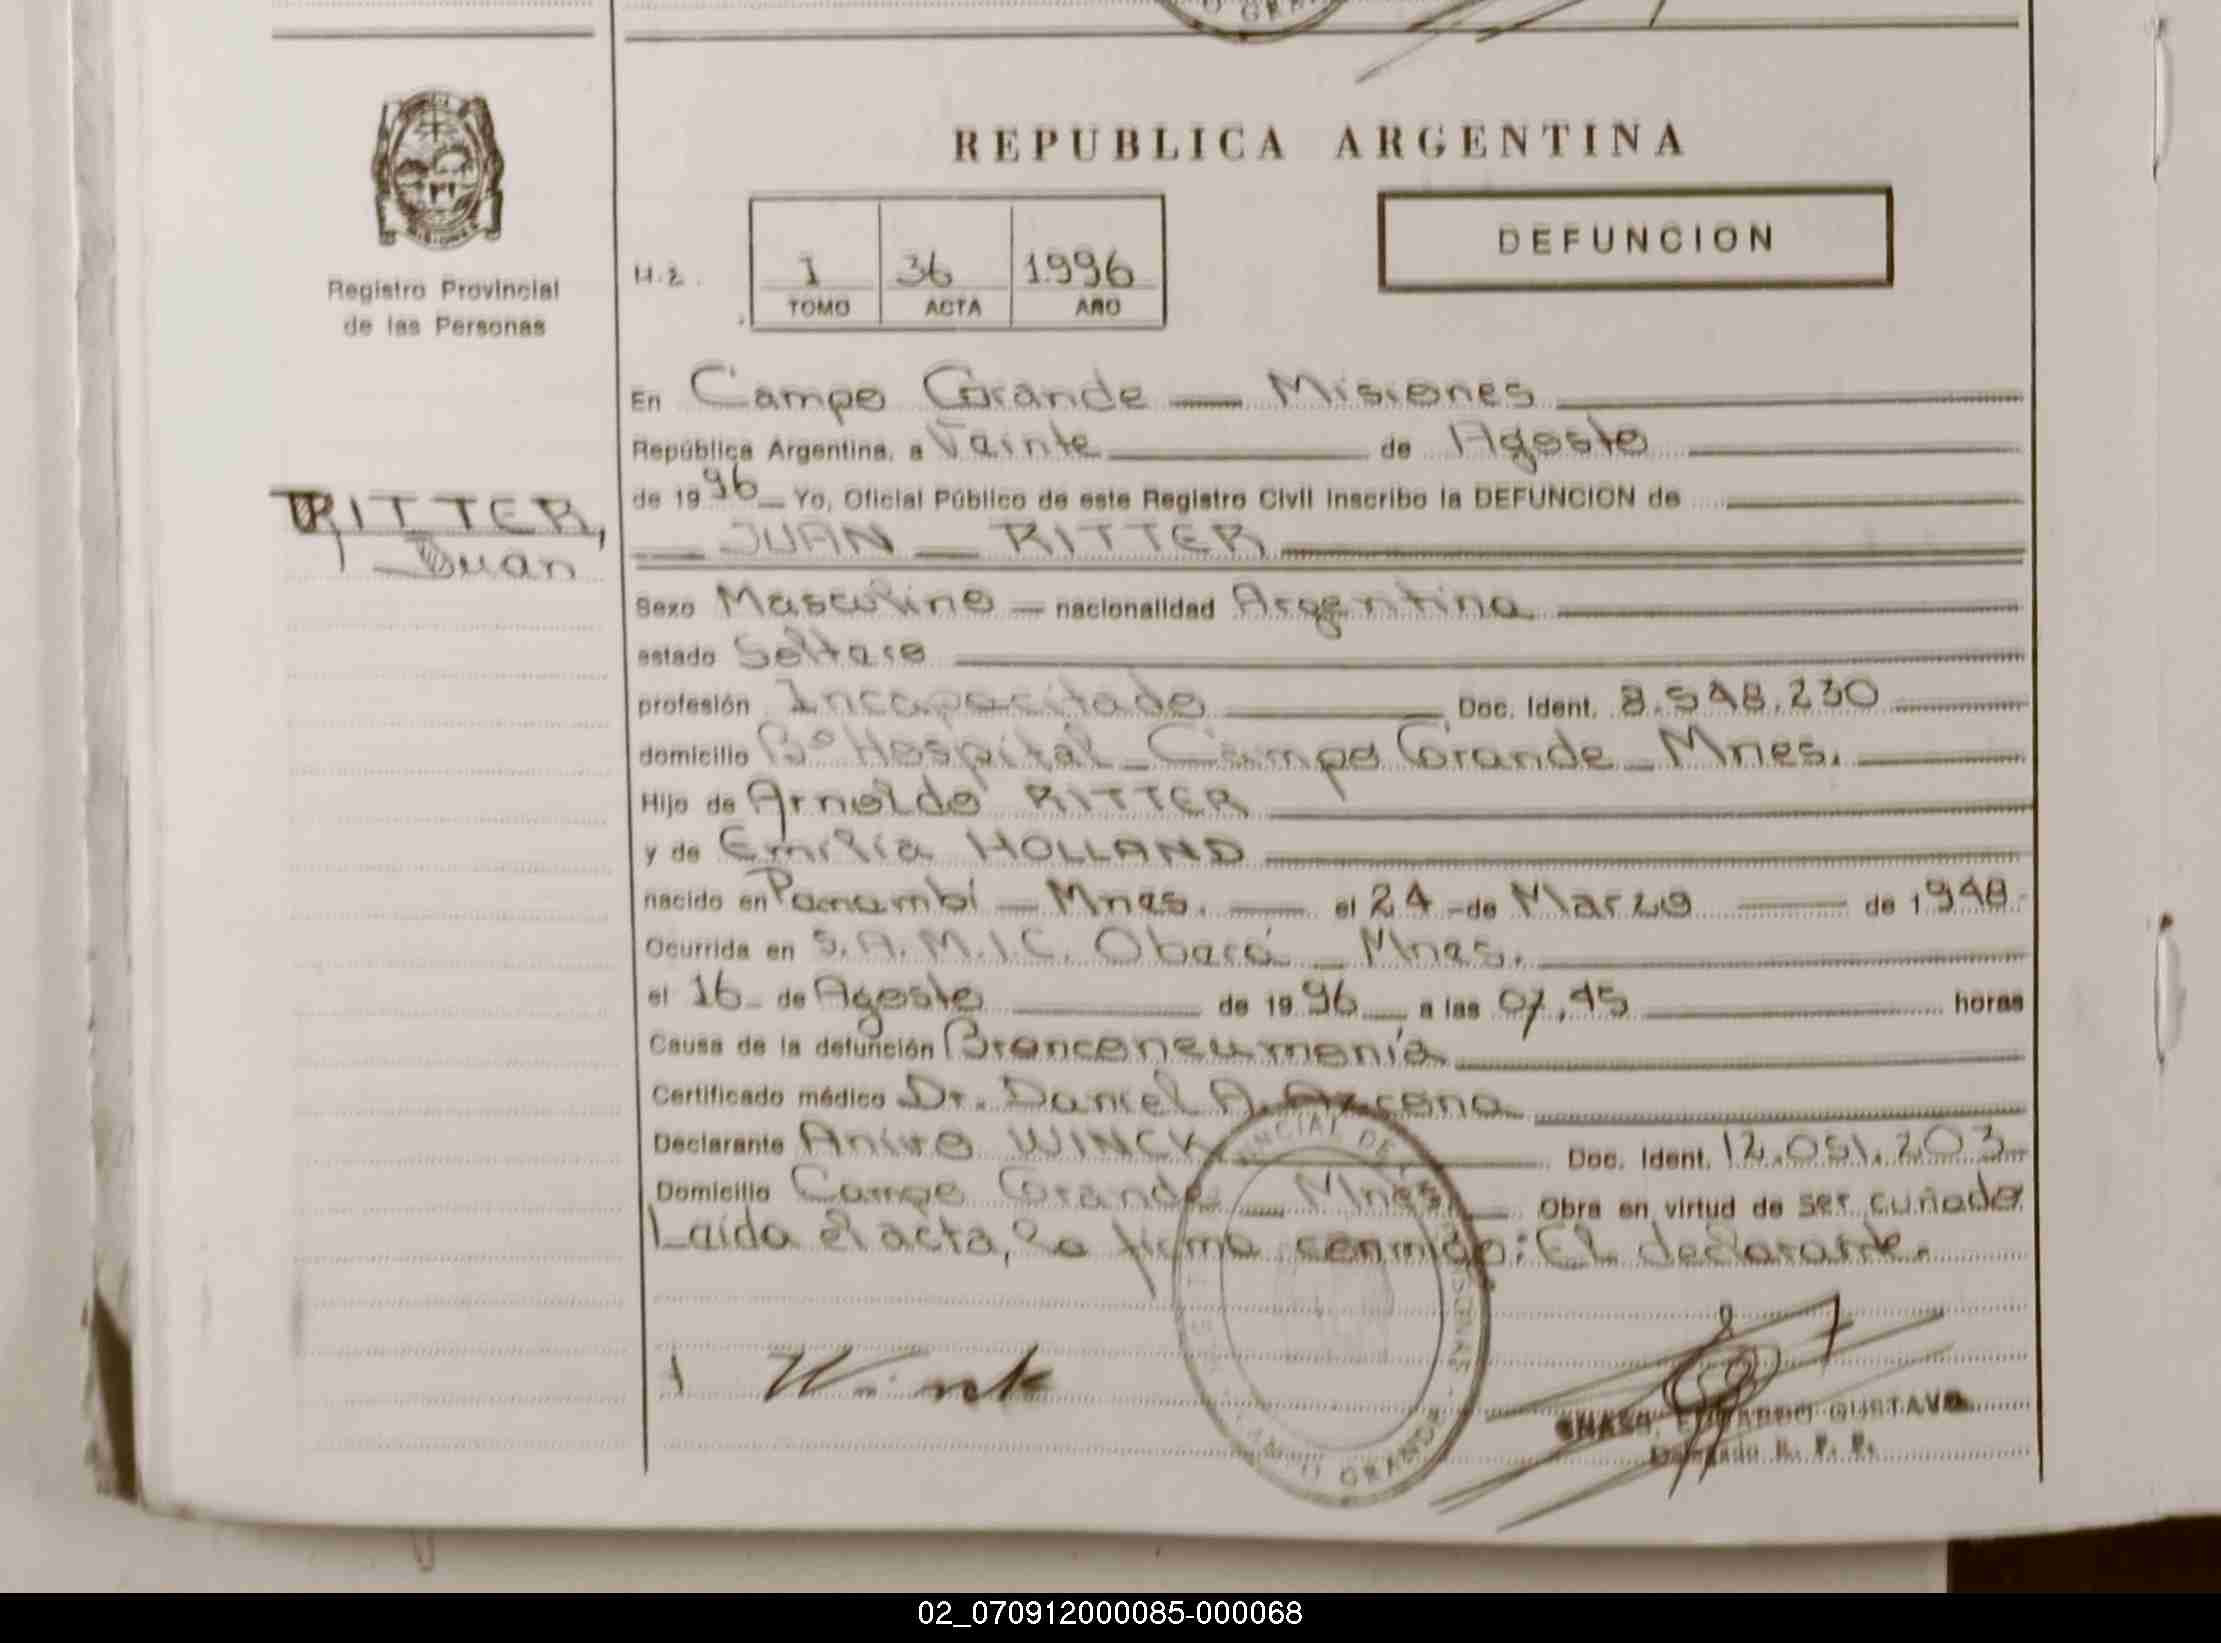 REPUBLICA ARGENTINA
DEFUNCION
Registro Provincial
de las Personas
H.2.
1 36 1996
TOMO ACTA AÑO
En Campo Grande — Misiones
República Argentina, a Veinte de Agosto
de 1996 Yo, Oficial Público de este Registro Civil inscribo la DEFUNCION de
RITTER,
Juan
JUAN — RITTER
Sexo Masculino — nacionalidad Argentina
estado Soltero
profesión Incapacitado Doc. Ident. 8.548.230
domicilio Bº Hospital - Campo Grande - Mnes.
Hijo de Arnoldo RITTER
y de Emilia HOLLAND
nacido en Panambí — Mnes. — el 24 - de Marzo de 1948
Ocurrida en S.A.M.I.C. Oberá — Mnes.
el 16 - de Agosto de 1996 a las 07,45 horas
Causa de la defunción Bronconeumonía
Certificado médico Dr. Daniel A. Azcona
Declarante Aniro WINCK Doc. Ident. 12.051.203
Domicilio Campo Grande — Mnes. Obra en virtud de ser cuñado
Leída el acta, la firma conmigo: El declarante.
Winck
EDUARDO GUSTAVO
Delegado R. P. P.
CAMPO GRANDE
02_070912000085-000068